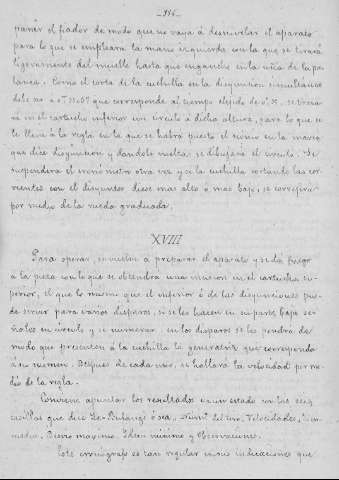 -116-
parar el fiador de modo que no vaya á desnivelar el aparato
para lo que se empleara la mano izquierda con la que se tirará
ligeramente del muelle hasta que enganche en la uña de la pa-
lanca. Como el corte de la cuchilla en la disyuncion simultanea
debe que corresponde al tiempo elejido de se traza-
rá en el cartucho inferior un circulo á dicha altura, para lo que se
le lleva á la regla en la que se habrá puesto el nonio en la marca
que dice disyuncion y dandole vuelta se dibujará el circulo. Se
suspenderá el cronómetro otra vez y si la cuchilla cortando las cor-
rientes con el disyuntor diese mas alto ó mas bajo, se correjira
por medio de la rueda graduada.
XVIII
Para operar, se vuelve á preparar el aparato y se dá fuego
á la pieza con lo que se obtendra una incision en el cartucho su-
perior, el que lo mismo que el inferior ó de las disyunciones pue-
de servir para varios disparos, si se les hacen en su parte baja se-
ñales en circulo y se numeran. En los disparos se les pondrá de
modo que presenten á la cuchilla la generatriz que corresponda
á su número. Despues de cada uno, se hallará la velocidad por me-
dio de la regla.
Conviene apuntar los resultados en un estado con las seis
casillas que dice Le-Boulangé ó sea. Núm.º del tiro, Velocidades,
medio, Desvio maximo, Idem minimo y Observaciones.
Este cronografo es tan regular en sus indicaciones que